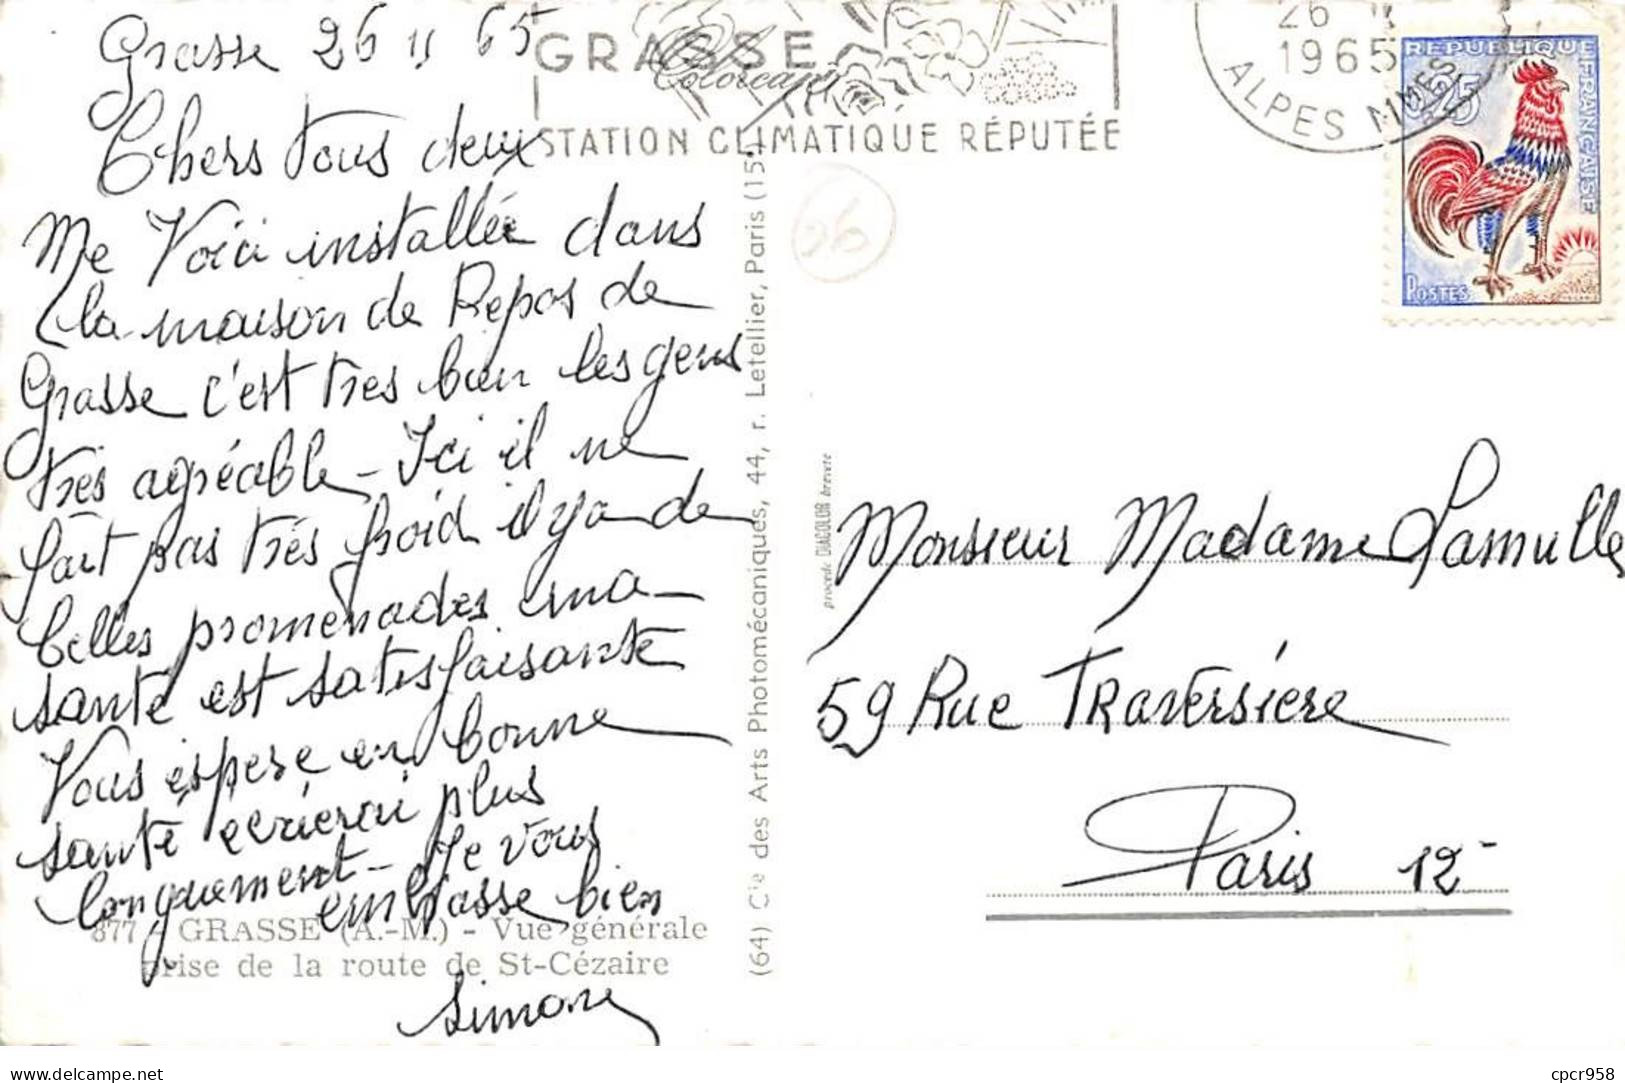 Grasse 26 11 65
Chers tous deux
Me Voici installée dans
la maison de Repos de
Grasse c'est tres bien les gens
très agréable - Ici il ne
fait pas très froid il y a de
belles promenades ma
santé est satisfaisante
Vous espere en bonne
santé ecrierai plus
longuement - Je vous
embrasse bien
Simone
877 - GRASSE (A.-M.) - Vue générale
prise de la route de St-Cézaire
GRASSE
STATION CLIMATIQUE RÉPUTÉE
26 11
1965
ALPES MMES
REPUBLIQUE FRANÇAISE
0,25
POSTES
26
(64) Cie des Arts Photomécaniques, 44, r. Letellier, Paris (15e)
procédé DIACOLOR breveté
Monsieur Madame Lamulle
59 Rue Traversière
Paris 12
cpcr958